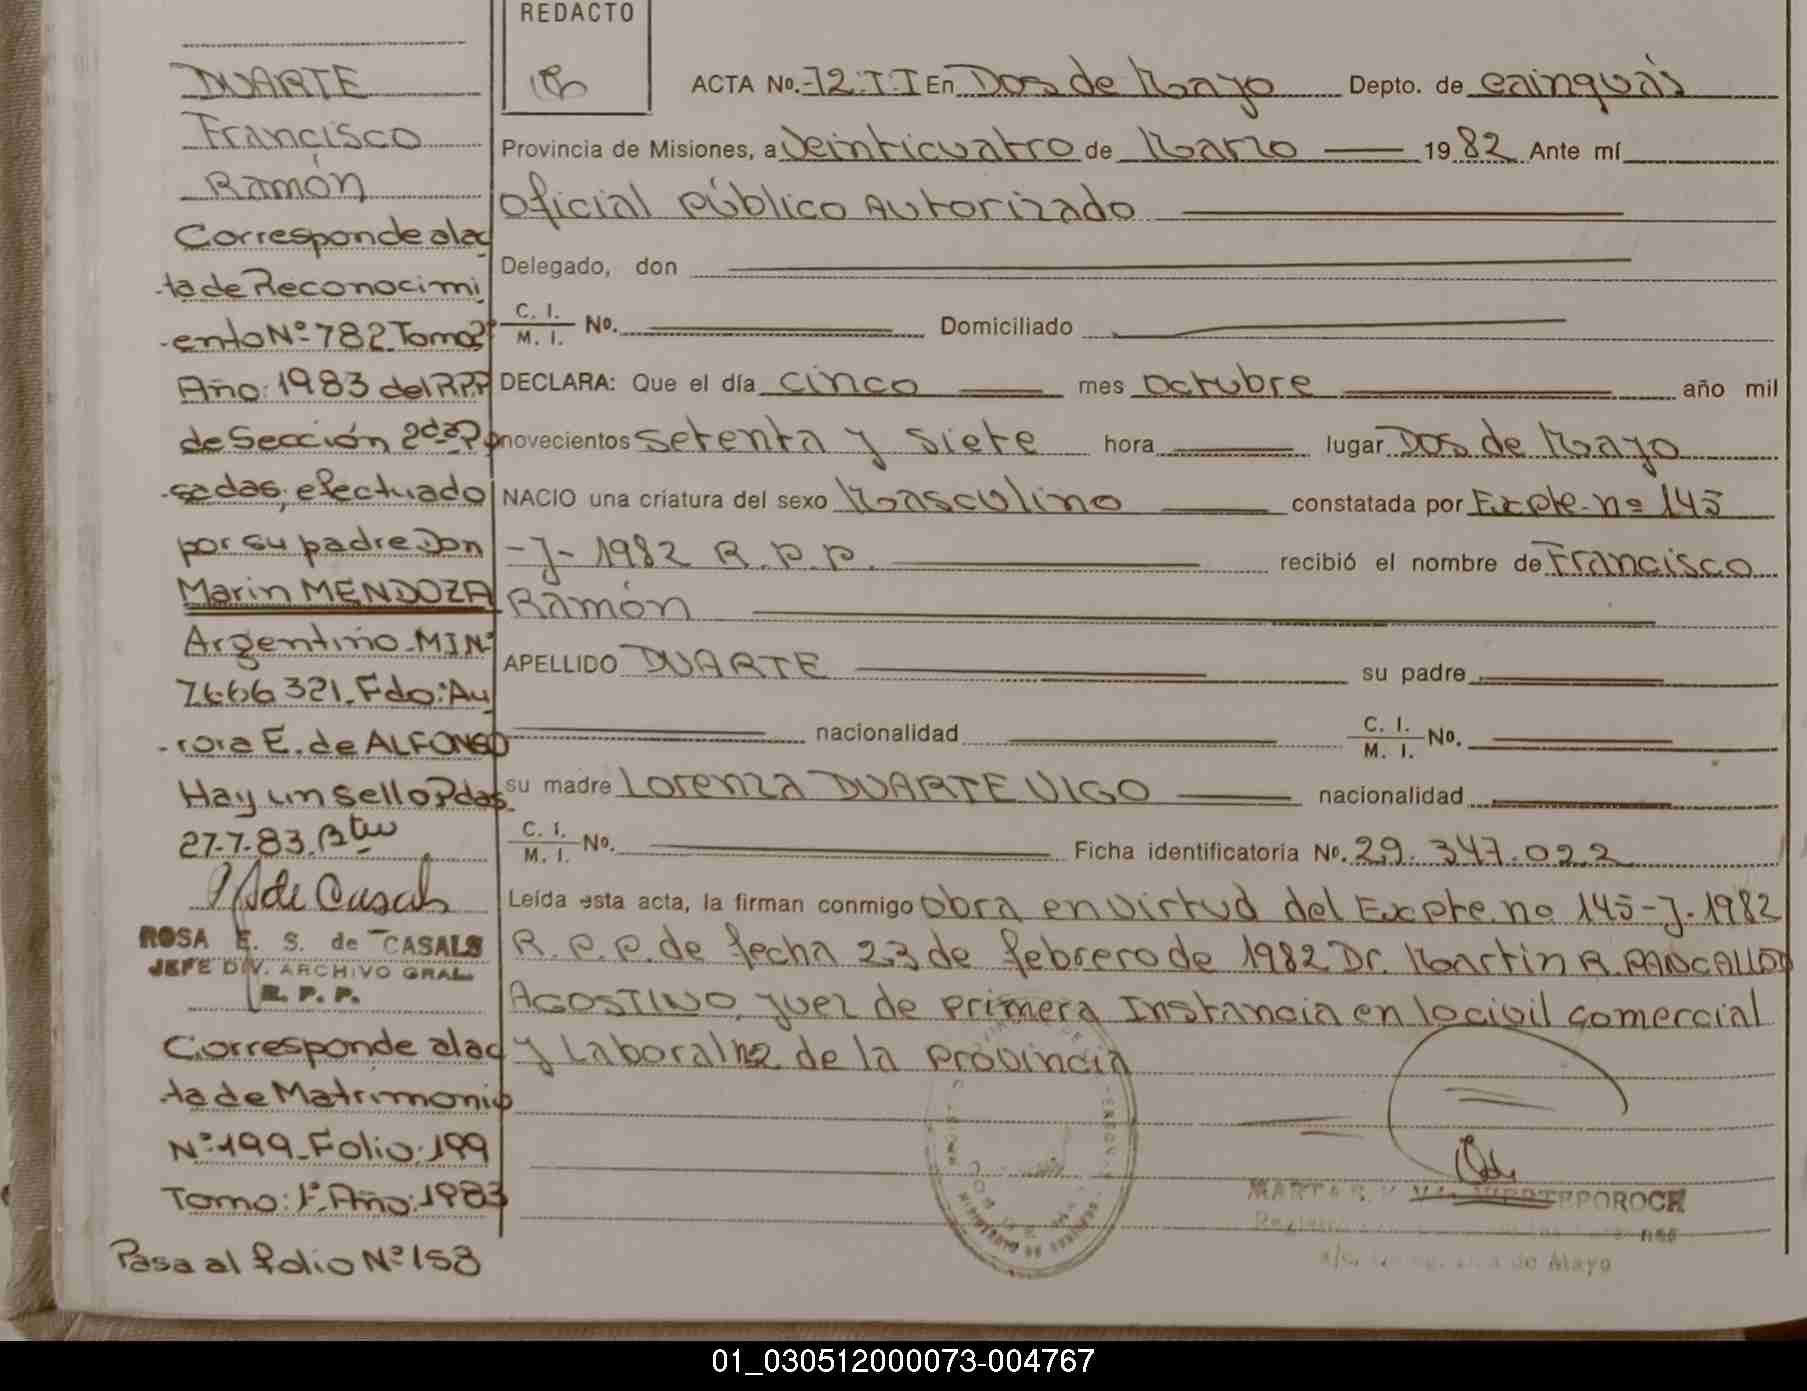 DUARTE
Francisco
Ramón
Corresponde alac
ta de Reconocimi
ento Nº 782 Tomo 2º
Año: 1983 del R.P.P
de Sección 2da Po
sadas, efectuado
por su padre Don
Marin MENDOZA
Argentino M I Nº
7.666 321. Fdo: Au
rora E. de ALFONSO
Hay un sello Pdas.
27-7-83.
ROSA E. S. de CASALS
JEFE DIV. ARCHIVO GRAL.
R. P. P.
Corresponde alac
ta de Matrimonio
Nº 199 Folio: 199
Tomo: 1º Año: 1983
Pasa al folio Nº 158
REDACTO
ACTA No. 72. T. I En Dos de Mayo Depto. de Cainguás
Provincia de Misiones, a Veinticuatro de Marzo 1982 Ante mí
Oficial Público Autorizado
Delegado, don
C. I. / M. I. No. Domiciliado
DECLARA: Que el día cinco mes octubre año mil
novecientos setenta y siete hora lugar Dos de Mayo
NACIO una criatura del sexo Masculino constatada por Expte. nº 145
-J- 1982 R. P. P. recibió el nombre de Francisco
Ramón
APELLIDO DUARTE su padre
nacionalidad C. I. / M. I. No.
su madre Lorenza DUARTE VIGO nacionalidad
C. I. / M. I. No. Ficha identificatoria No. 29. 347. 022
Leída esta acta, la firman conmigo Obra en virtud del Expte. nº 145-J-1982
R.P.P. de fecha 23 de febrero de 1982 Dr. Martin R.
AGOSTINO, Juez de Primera Instancia en lo civil comercial
y Laboral nº2 de la Provincia
POROCH
de Mayo
01_030512000073-004767